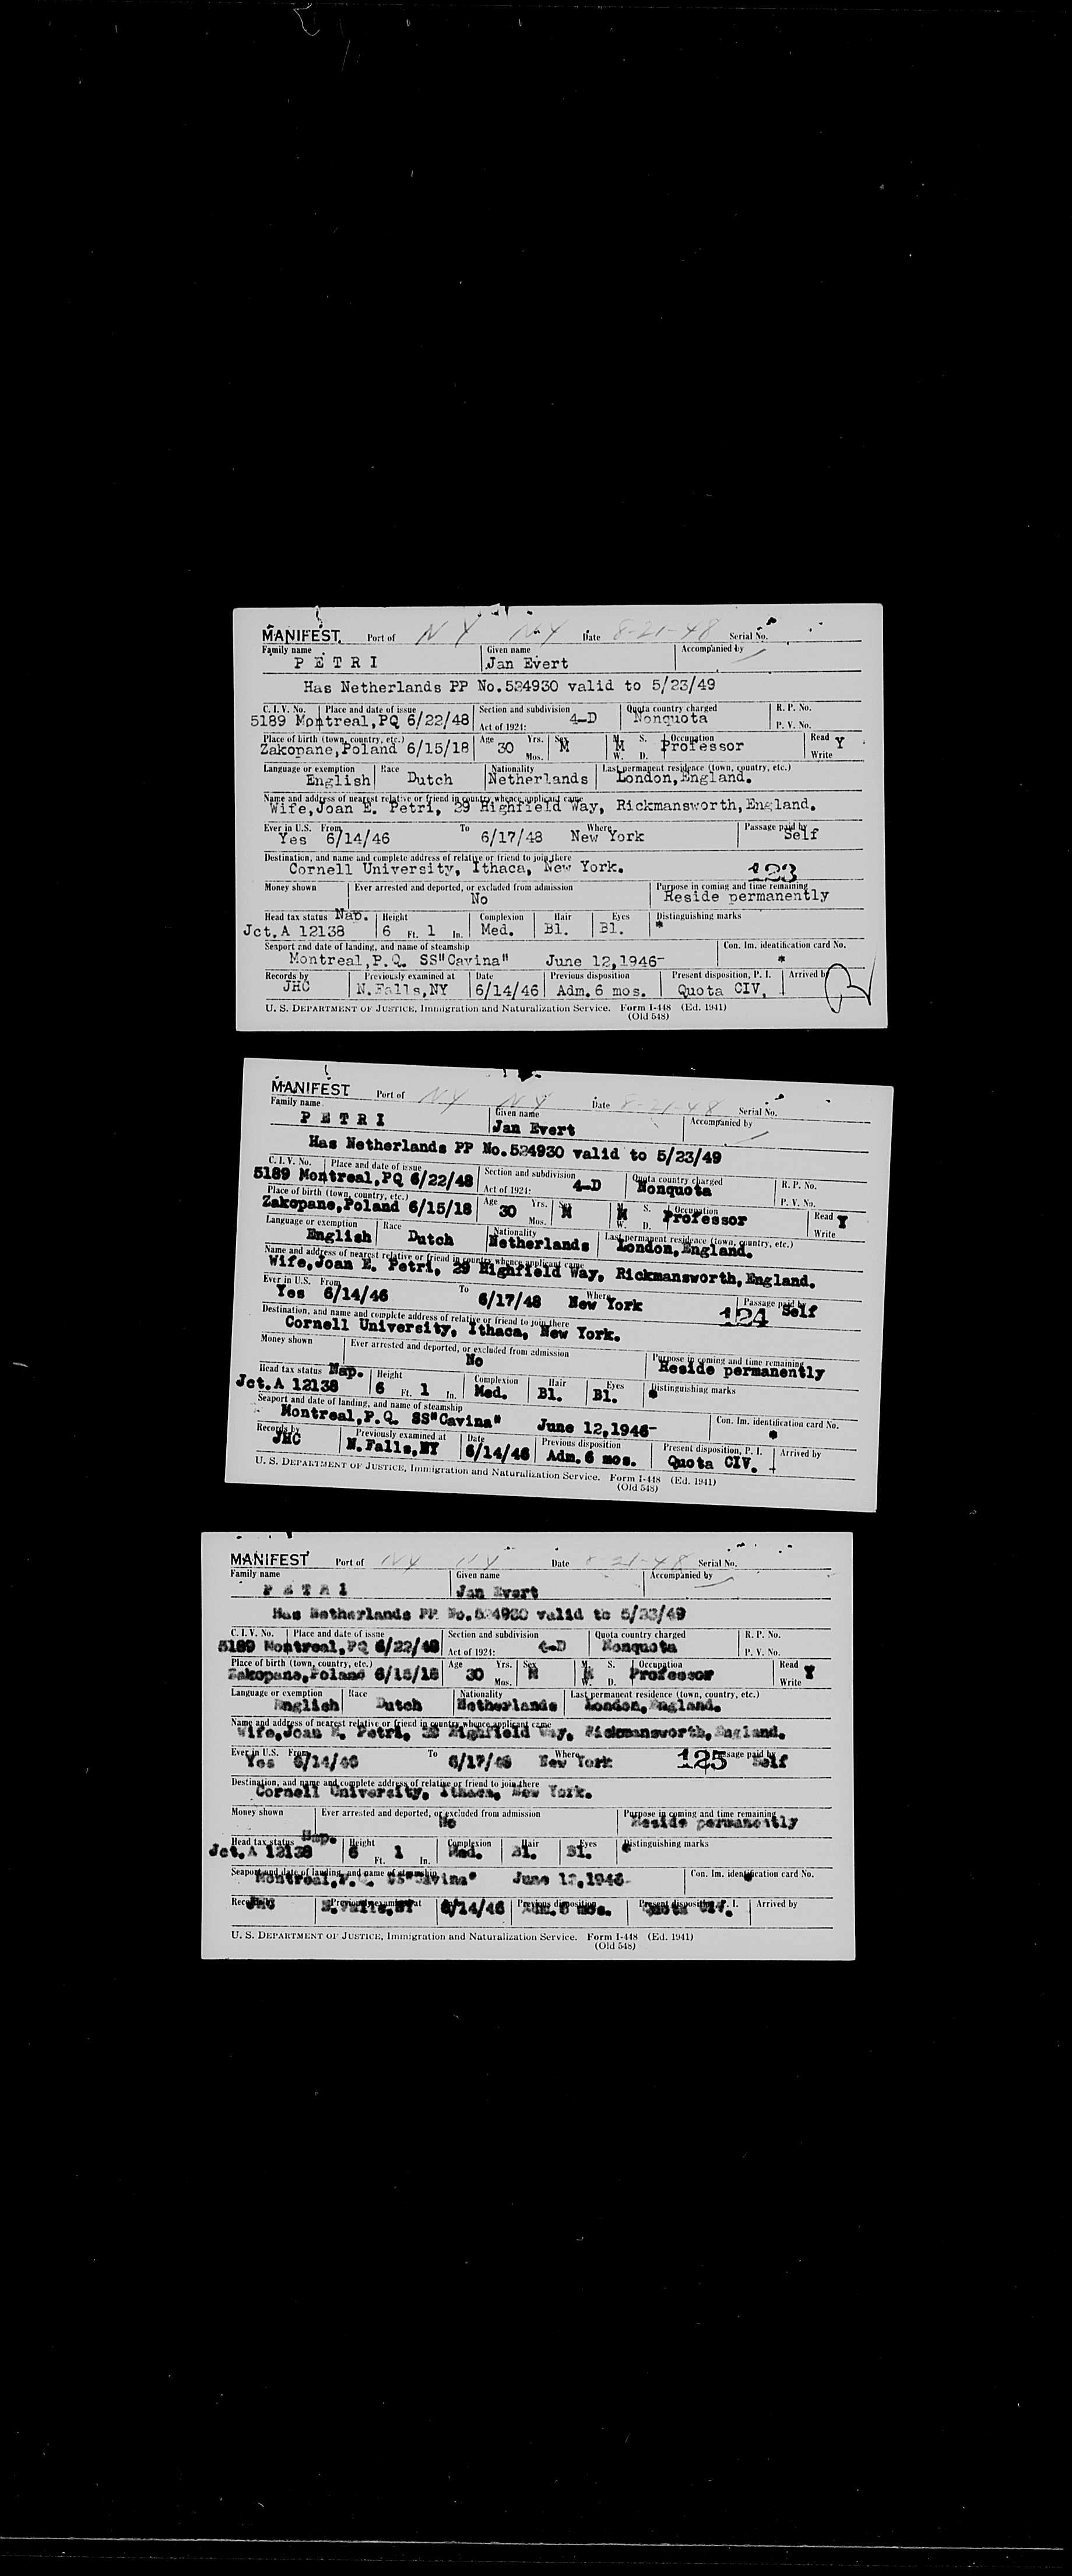 MANIFEST Port of N Y N Y Date 8-21-48 Serial No.
Family name Given name Accompanied by
P E T R I Jan Evert
Has Netherlands PP No.524930 valid to 5/23/49
C. I. V. No. Place and date of issue Section and subdivision Quota country charged R. P. No.
5189 Montreal,PQ 6/22/48 Act of 1924: 4-D Nonquota P. V. No.
Place of birth (town, country, etc.) Age Yrs. Sex M. S. Occupation Read Y
Zakopane,Poland 6/15/18 30 Mos. M M W. D. Professor Write
Language or exemption Race Nationality Last permanent residence (town, country, etc.)
English Dutch Netherlands London,England.
Name and address of nearest relative or friend in country whence applicant came
Wife,Joan E. Petri, 29 Highfield Way, Rickmansworth,England.
Ever in U.S. From To Where Passage paid by
Yes 6/14/46 6/17/48 New York Self
Destination, and name and complete address of relative or friend to join there
Cornell University, Ithaca, New York. 123
Money shown Ever arrested and deported, or excluded from admission Purpose in coming and time remaining
No Reside permanently
Head tax status Nap. Height Complexion Hair Eyes Distinguishing marks
Jct.A 12138 6 Ft. 1 In. Med. Bl. Bl. *
Seaport and date of landing, and name of steamship Con. Im. identification card No.
Montreal,P.Q. SS"Cavina" June 12,1946- *
Records by Previously examined at Date Previous disposition Present disposition, P. I. Arrived by
JHC N.Falls,NY 6/14/46 Adm.6 mos. Quota CIV.
U. S. DEPARTMENT OF JUSTICE, Immigration and Naturalization Service. Form I-448 (Ed. 1941)
(Old 548)
MANIFEST Port of N Y N Y Date 8-21-48 Serial No.
Family name Given name Accompanied by
P E T R I Jan Evert
Has Netherlands PP No.524930 valid to 5/23/49
C. I. V. No. Place and date of issue Section and subdivision Quota country charged R. P. No.
5189 Montreal,PQ 6/22/48 Act of 1924: 4-D Nonquota P. V. No.
Place of birth (town, country, etc.) Age Yrs. Sex M. S. Occupation Read Y
Zakopane,Poland 6/15/18 30 Mos. M M W. D. Professor Write
Language or exemption Race Nationality Last permanent residence (town, country, etc.)
English Dutch Netherlands London,England.
Name and address of nearest relative or friend in country whence applicant came
Wife,Joan E. Petri, 29 Highfield Way, Rickmansworth,England.
Ever in U.S. From To Where Passage paid by
Yes 6/14/46 6/17/48 New York 124 Self
Destination, and name and complete address of relative or friend to join there
Cornell University, Ithaca, New York.
Money shown Ever arrested and deported, or excluded from admission Purpose in coming and time remaining
No Reside permanently
Head tax status Nap. Height Complexion Hair Eyes Distinguishing marks
Jct.A 12138 6 Ft. 1 In. Med. Bl. Bl. *
Seaport and date of landing, and name of steamship Con. Im. identification card No.
Montreal,P.Q. SS"Cavina" June 12,1946- *
Records by Previously examined at Date Previous disposition Present disposition, P. I. Arrived by
JHC N.Falls,NY 6/14/46 Adm.6 mos. Quota CIV.
U. S. DEPARTMENT OF JUSTICE, Immigration and Naturalization Service. Form I-448 (Ed. 1941)
(Old 548)
MANIFEST Port of N Y N Y Date 8-21-48 Serial No.
Family name Given name Accompanied by
P E T R I Jan Evert
Has Netherlands PP No.524930 valid to 5/23/49
C. I. V. No. Place and date of issue Section and subdivision Quota country charged R. P. No.
5189 Montreal,PQ 6/22/48 Act of 1924: 4-D Nonquota P. V. No.
Place of birth (town, country, etc.) Age Yrs. Sex M. S. Occupation Read Y
Zakopane,Poland 6/15/18 30 Mos. M M W. D. Professor Write
Language or exemption Race Nationality Last permanent residence (town, country, etc.)
English Dutch Netherlands London,England.
Name and address of nearest relative or friend in country whence applicant came
Wife,Joan E. Petri, 29 Highfield Way, Rickmansworth,England.
Ever in U.S. From To Where Passage paid by
Yes 6/14/46 6/17/48 New York 125 Self
Destination, and name and complete address of relative or friend to join there
Cornell University, Ithaca, New York.
Money shown Ever arrested and deported, or excluded from admission Purpose in coming and time remaining
No Reside permanently
Head tax status Nap. Height Complexion Hair Eyes Distinguishing marks
Jct.A 12138 6 Ft. 1 In. Med. Bl. Bl. *
Seaport and date of landing, and name of steamship Con. Im. identification card No.
Montreal,P.Q. SS"Cavina" June 12,1946- *
Records by Previously examined at Previous disposition Present disposition, P. I. Arrived by
JHC N.Falls,NY 6/14/46 Adm.6 mos. Quota CIV.
U. S. DEPARTMENT OF JUSTICE, Immigration and Naturalization Service. Form I-448 (Ed. 1941)
(Old 548)